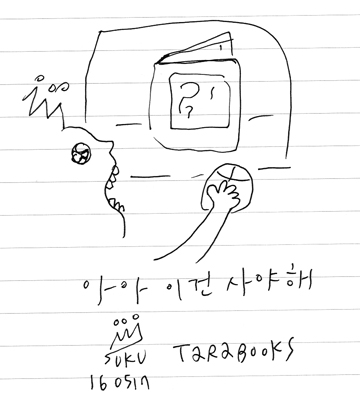 ??
아아 이건 사야해
SUKU TARABOOKS
160517